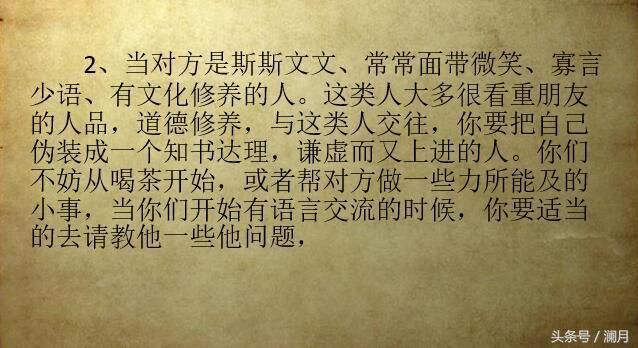 2、当对方是斯斯文文、常常面带微笑、寡言
少语、有文化修养的人。这类人大多很看重朋友
的人品，道德修养，与这类人交往，你要把自己
伪装成一个知书达理，谦虚而又上进的人。你们
不妨从喝茶开始，或者帮对方做一些力所能及的
小事，当你们开始有语言交流的时候，你要适当
的去请教他一些他问题，
头条号 / 澜月